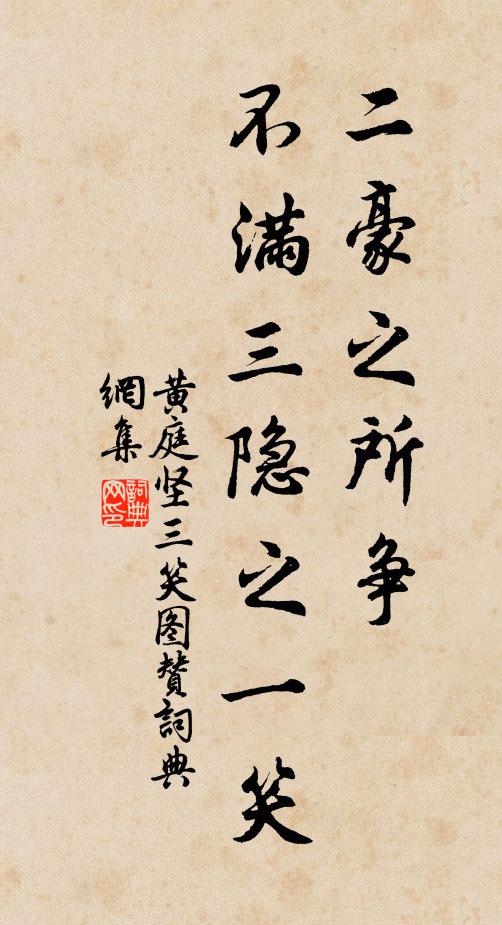 二豪之所争
不满三隐之一笑
黄庭坚三笑图赞詞典
網集
詞典
网印